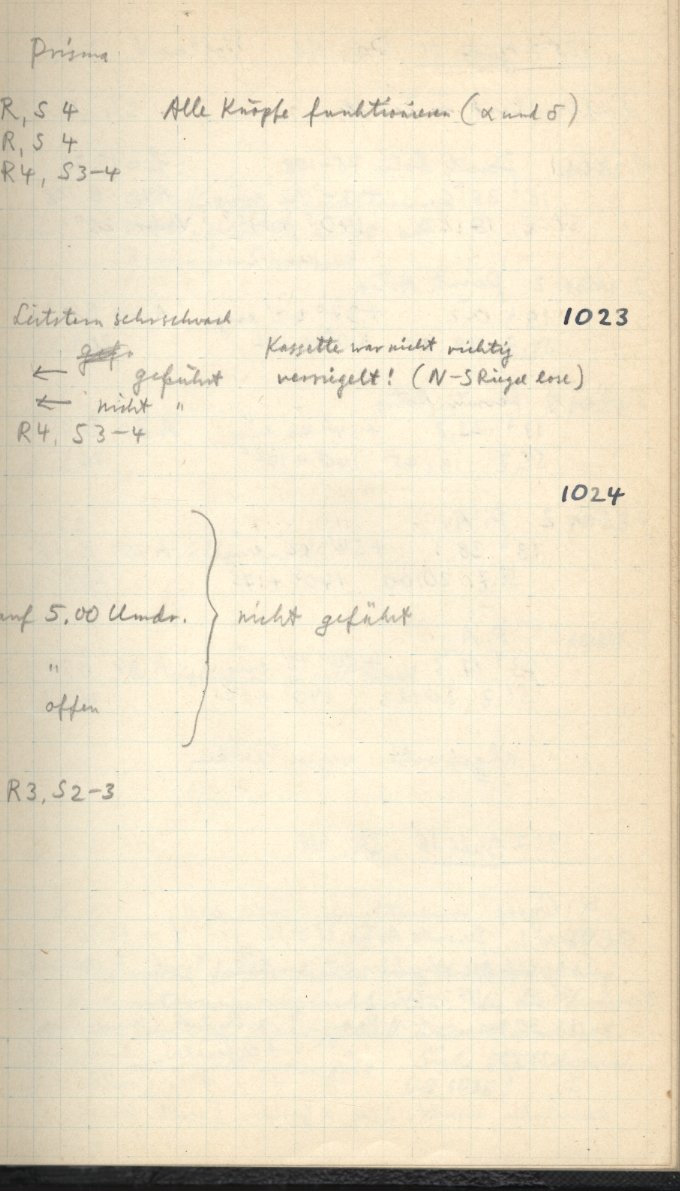 Prisma
R, S 4 Alle Knöpfe funktionieren (α und δ)
R, S 4
R4, S3-4
Leitstern sehr schwach 1023
Kassette war nicht richtig
← geführt verriegelt! (N-S Riegel lose)
← nicht "
R4, S3-4
1024
auf 5.00 Umdr. nicht geführt
"
offen
R3, S2-3